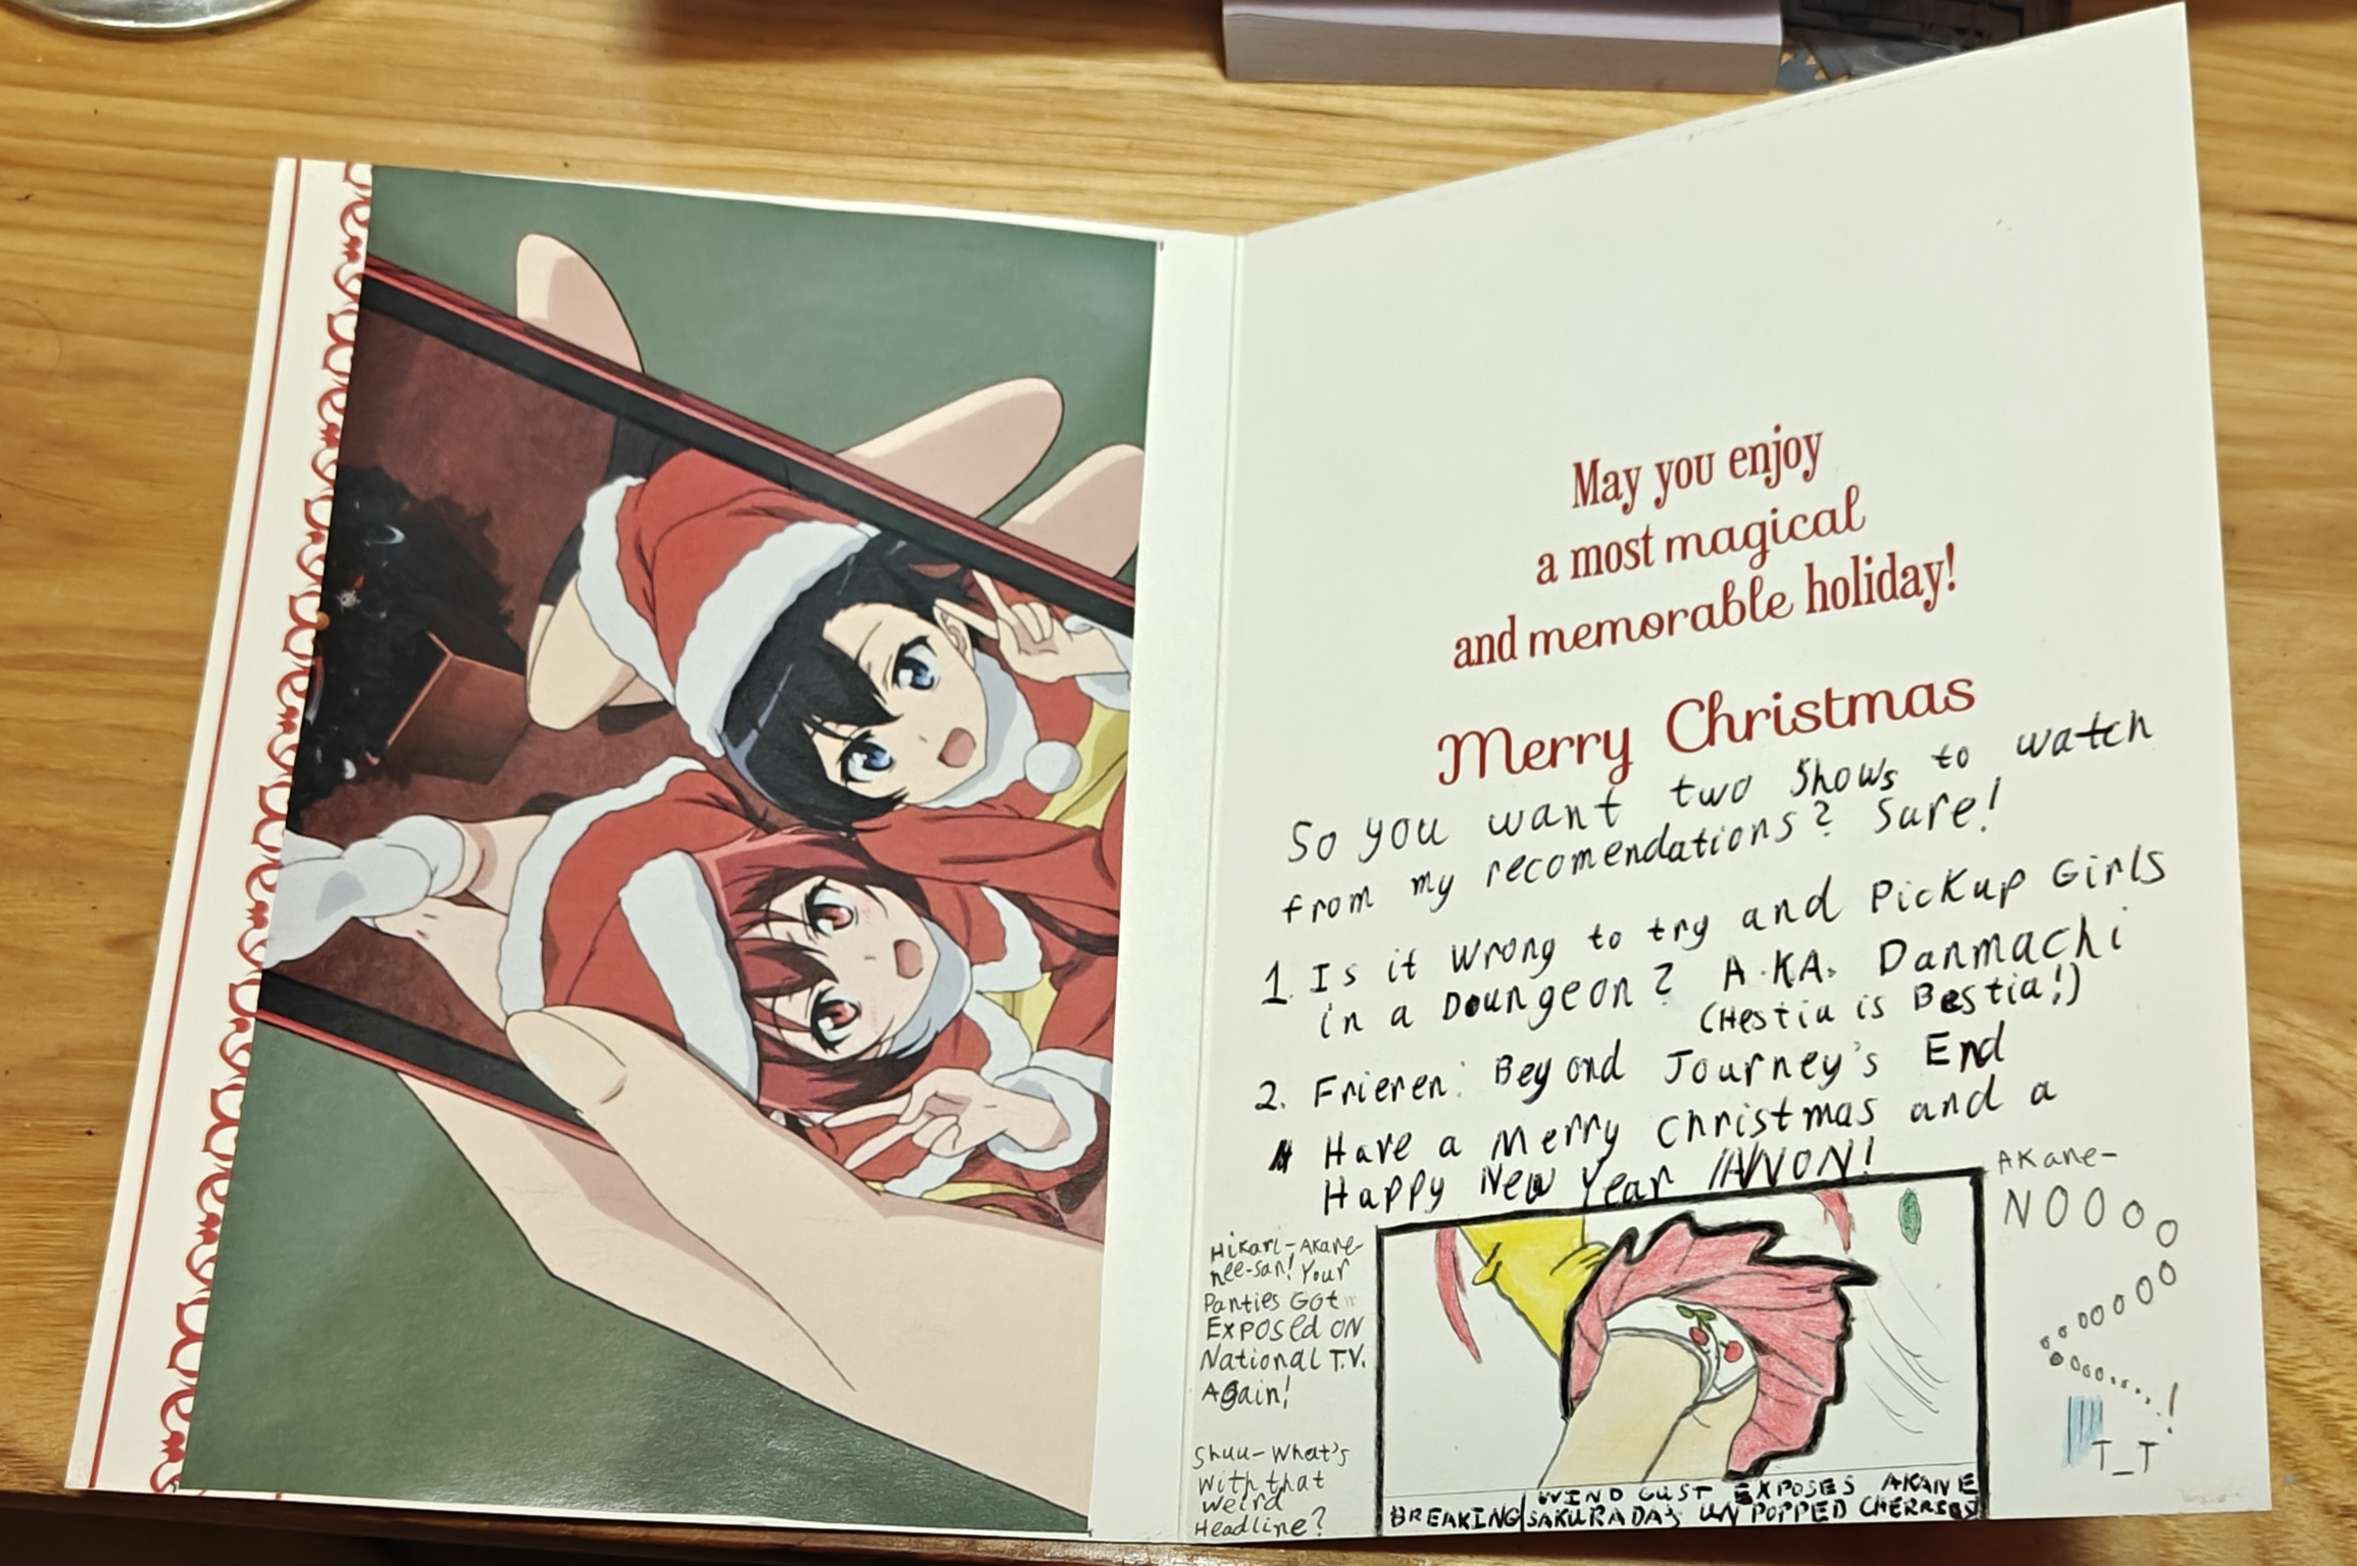 May you enjoy
a most magical
and memorable holiday!
Merry Christmas
So you want two Shows to watch
from my recomendations? Sure!
1. Is it Wrong to try and Pickup Girls
in a Doungeon? A.KA. Danmachi
(Hestia is Bestia!)
2. Frieren: Beyond Journey's End
Have a Merry Christmas and a
Happy New Year ANON!
Hikari-Akane-
nee-san! Your
Panties Got
Exposed ON
National T.V.
Again!
Shuu-What's
With that
weird
Headline?
Akane-
NOOOO
ooooooo
oooo....!
T_T
BREAKING
WIND GUST EXPOSES AKANE
SAKURADA'S UN POPPED CHERRIES